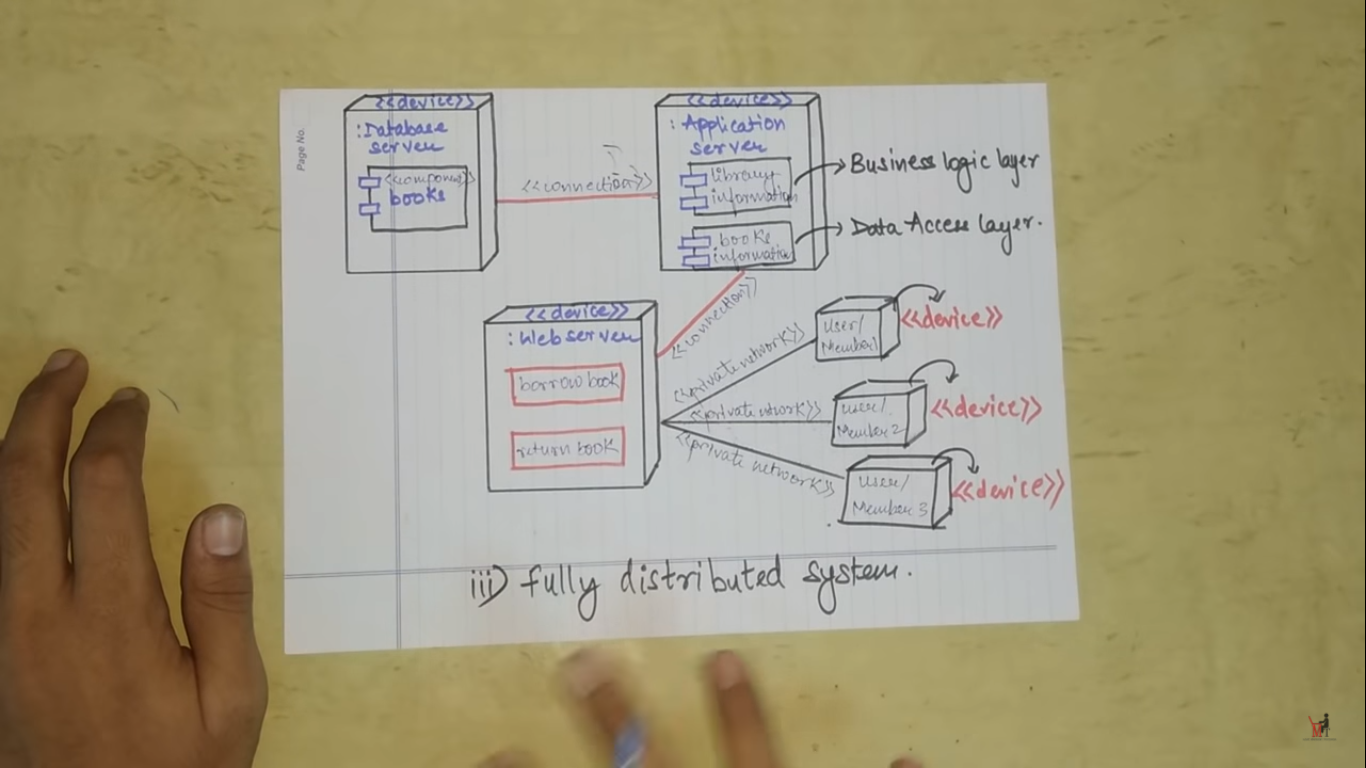 Page No.
<<device>>
:Database
server
<<component>>
books
<<connection>>
<<device>>
: Application
server
library
information
books
information
Business logic layer
Data Access layer.
<<connection>>
<<device>>
: Web server
borrow book
return book
<<private network>>
<<private network>>
<<private network>>
User/
Member1
<<device>>
User/
Member 2
<<device>>
User/
Member 3
<<device>>
iii) fully distributed system.